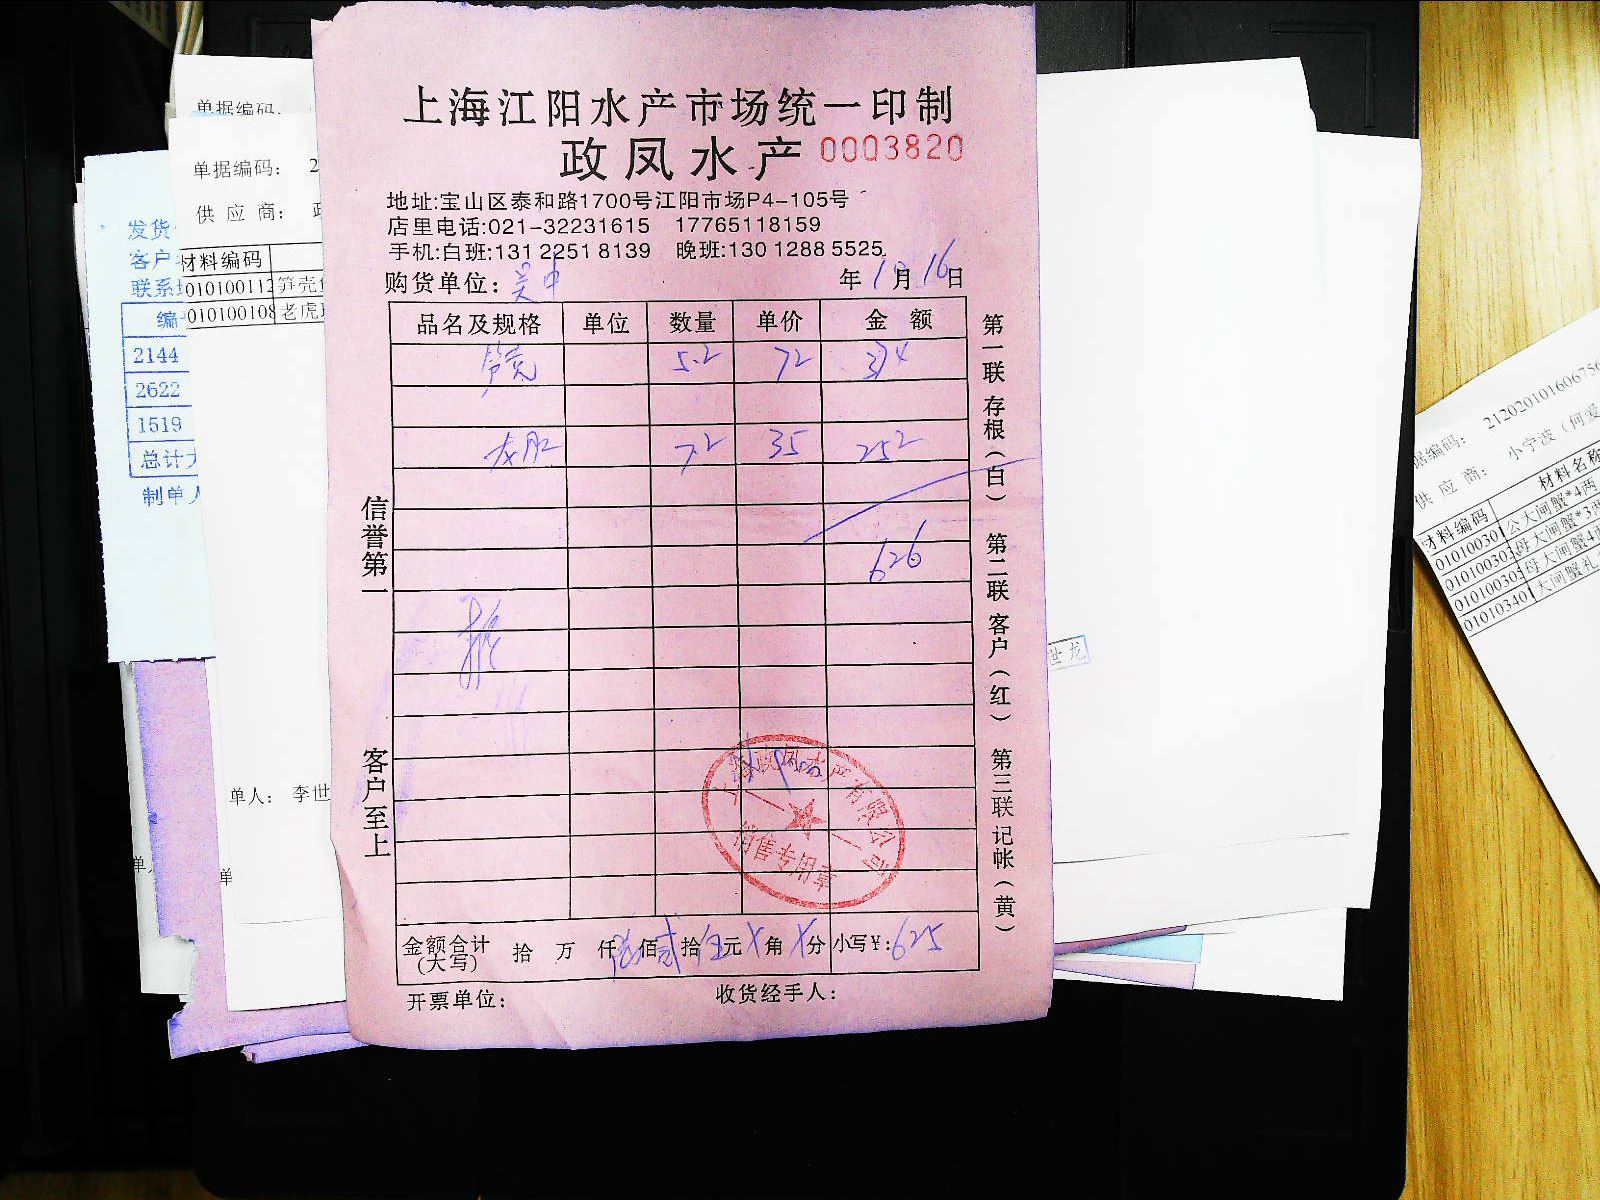 上海江阳水产市场统一印制
政凤水产 0003820
地址:宝山区泰和路1700号江阳市场P4-105号
店里电话:021-32231615 17765118159
手机:白班:131 2251 8139 晚班:130 1288 5525
购货单位: 吴中 年 10 月 16 日
品名及规格 单位 数量 单价 金额
5.2 72 374
7.2 35 252
626
信誉第一
客户至上
第一联存根(白) 第二联客户(红) 第三联记帐(黄)
上海政凤水产有限公司
销售专用章
金额合计(大写) 拾 万 仟 陆佰 贰拾 伍元 X角 X分 小写¥: 625
开票单位: 收货经手人:
单据编码:
单据编码: 2
供应商:
材料编码
010100112 笋壳
010100108 老虎
发货
客户
联系
编
2144
2622
1519
总计
制单人
单人: 李世
单
世龙
据编码: 212020101606756
供应商: 小宁波(何爱
材料编码 材料名称
01010030 公大闸蟹*4两
01010030 母大闸蟹*3两
01010030 母大闸蟹4两
01010340 大闸蟹礼